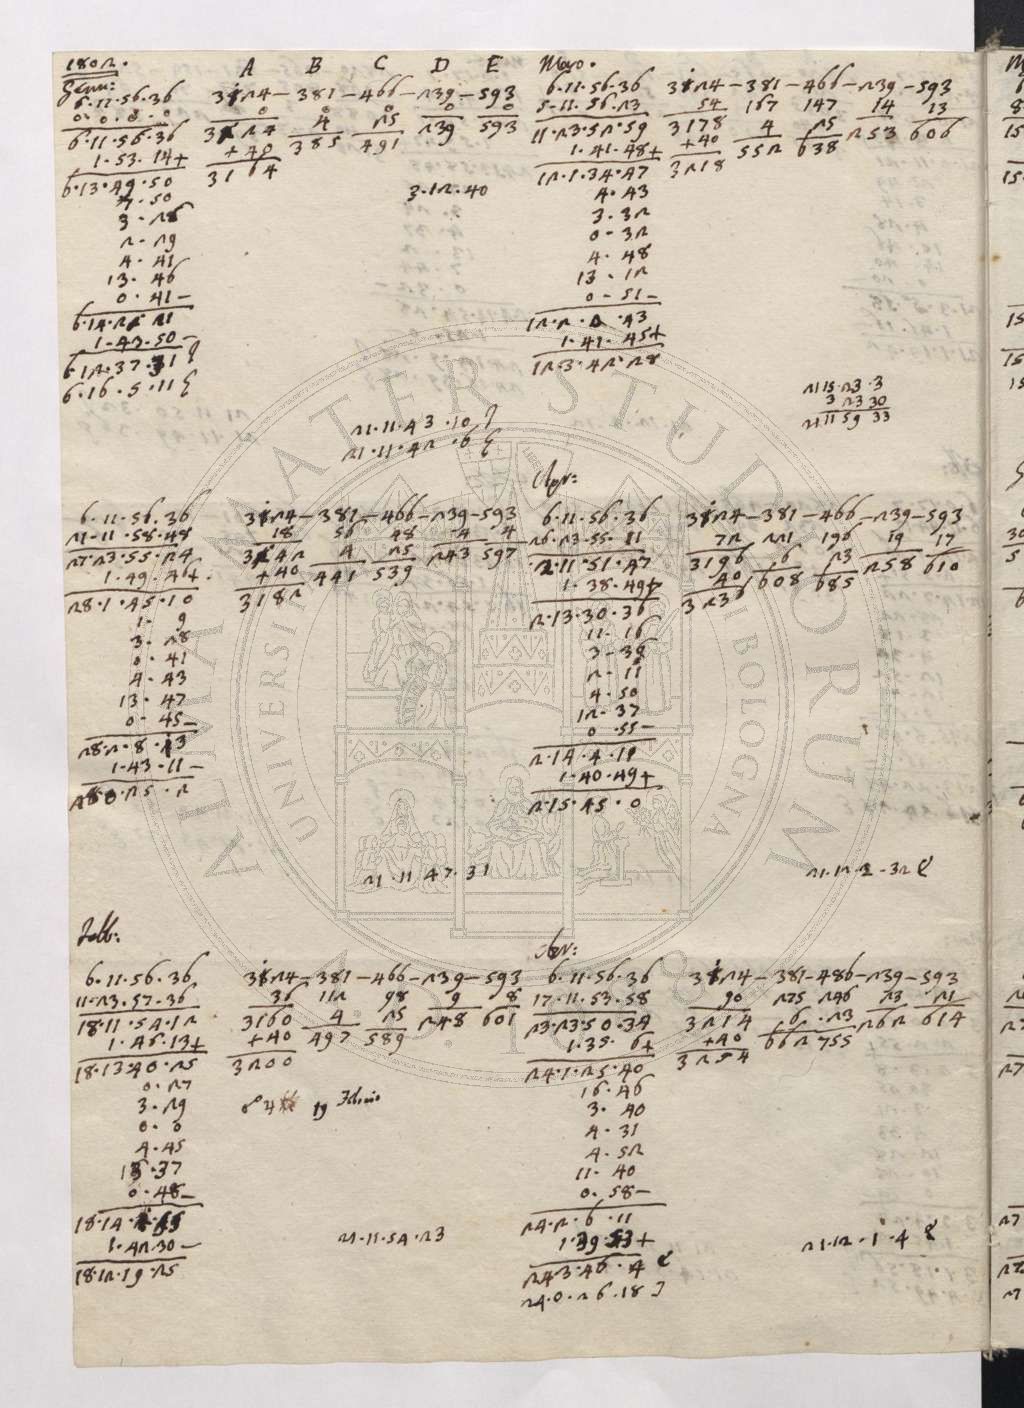 1802.
Genn:
A B C D E
6·11·56·36 3124 – 381 – 466 – 239 – 593
0·0·0·0 0 0 0 0 0
6·11·56·36 3124 4 25 239 593
1·53·14+ +40 385 491
6·13·49·50 3164
7·50
3·28
2·29
4·41
13·46
0·41–
6·14·22·21
1·43·50
6·12·37·31
6·16·5·11
3·12·40
21·11·43·10
21·11·42·6
Mazo.
6·11·56·36 3124 – 381 – 466 – 239 – 593
5·11·56·23 54 167 147 14 13
11·23·52·59 3178 4 25 253 606
1·41·48+ +40 552 638
12·1·34·47 3218
4·43
3·32
0·32
4·48
13·12
0·51–
12·2·0·43
1·41·45+
12·3·42·28
21 15·23·3
3 23 30
21 11 59 33
6·11·56·36 3124 – 381 – 466 – 239 – 593
21·11·58·48 18 56 48 4 4
27·23·55·24 3142 4 25 243 597
1·49·46+ +40 441 539
28·1·45·10 3182
1·9
3·28
0·41
4·43
13·47
0·45–
28·2·8·13
1·43·11–
28·0·25·2
21·11·47·31
Apr:
6·11·56·36 3124 – 381 – 466 – 239 – 593
26·23·55·11 72 221 196 19 17
2·11·51·47 3196 6 23 258 610
1·38·49+ 40 608 685
2·13·30·36 3236
11·16
3·36
2·11
4·50
12·37
0·55–
2·14·4·11
1·40·49+
2·15·45·0
21·12·2·32
Febb:
6·11·56·36 3124 – 381 – 466 – 239 – 593
11·23·57·36 36 112 98 9 8
18·11·54·12 3160 4 25 248 601
1·46·13+ +40 497 589
18·13·40·25 3200
0·27
3·29
0·0
4·45
13·37
0·48–
1·42·30–
18·12·19·25
19
21·11·54·23
6·11·56·36 3124 – 381 – 486 – 239 – 593
17·11·53·58 90 275 246 23 21
23·23·50·34 3214 6 23 262 614
1·35·6+ +40 662 755
24·1·25·40 3254
16·46
3·40
4·31
4·52
11·40
0·58–
24·2·6·11
1·39·53+
24·3·46·4
24·0·26·18
21·12·1·4